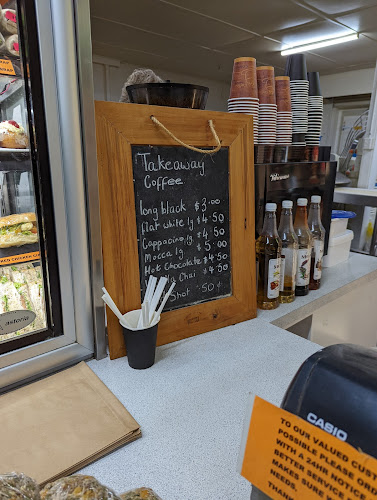 Takeaway
Coffee
long black $3.00
flat white lg $4.50
Cappacino, lg $4.50
Mocca, lg $5.00
Hot Chocolate $4.50
Chai $4.50
Shot 50¢
astoria
CASIO
TO OUR VALUED
POSSIBLE PLEASE
WITH A 24HR NOTICE
BETTER SERVICE
MAKES SURE
NEEDS